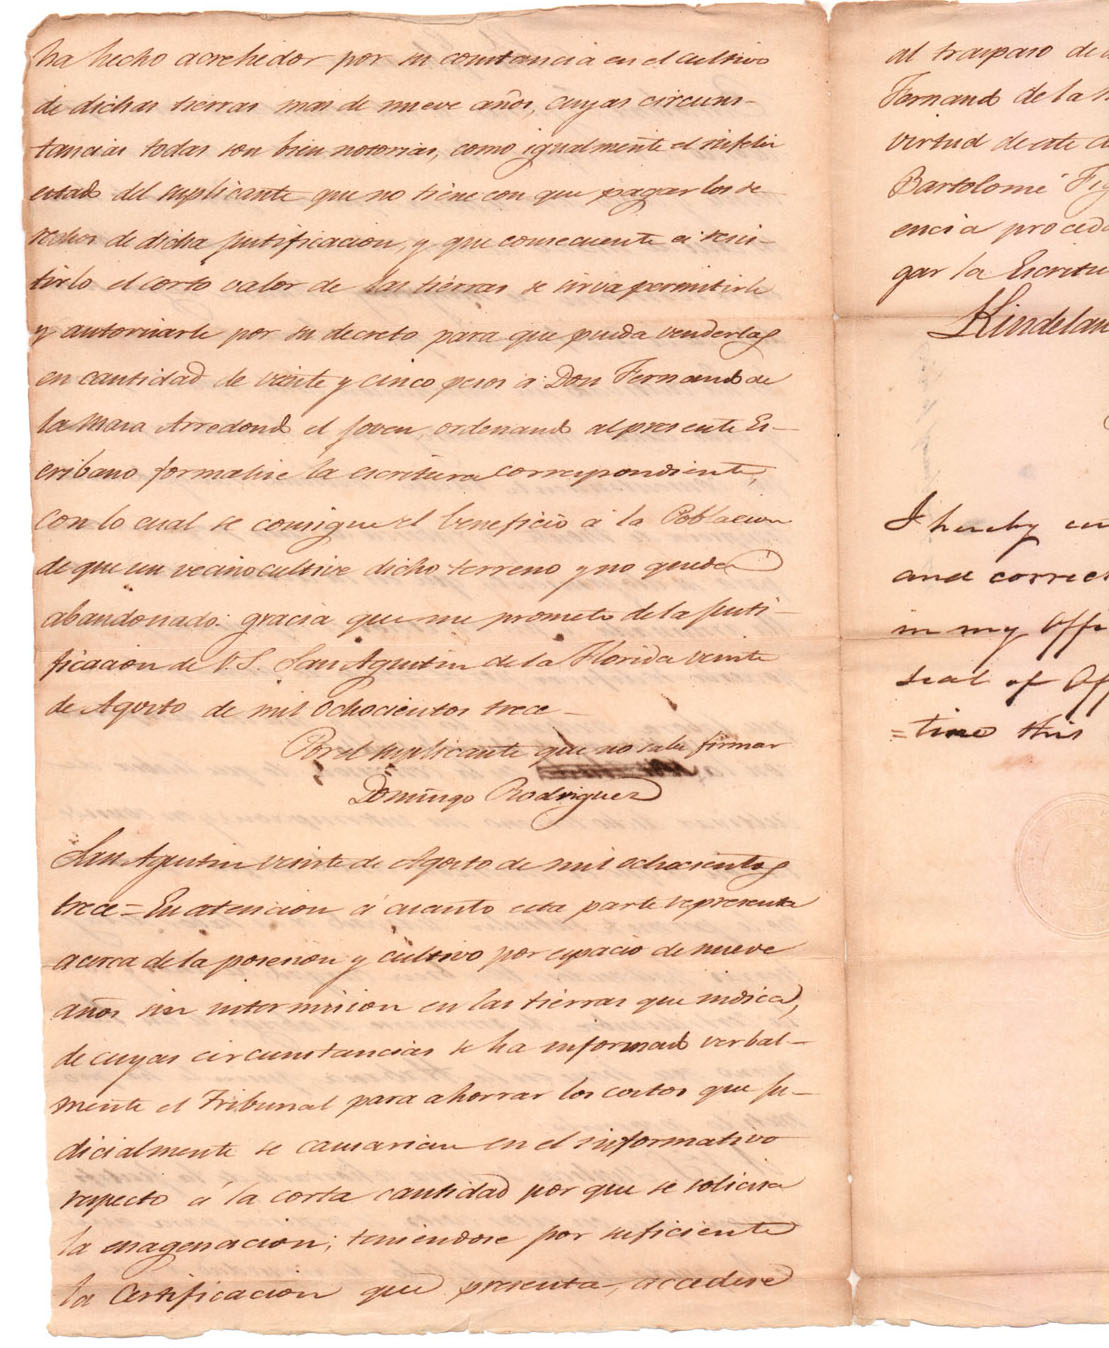 ha hecho acrehedor por su constancia en el cultivo
de dichas tierras mas de nueve años, cuyas circuns-
tancias todas son bien notorias, como igualmente el infeliz
estado del suplicante que no tiene con que pagar los de
rechos de dicha justificacion, y que consecuente á resis-
tirlo el corto valor de las tierras se sirva permitirle
y autorizarle por su decreto para que pueda venderlas
en cantidad de veinte y cinco pesos á Don Fernando de
la Maza Arredondo el joven, ordenando al presente Es-
cribano formalise la escritura correspondiente,
con lo cual se consigue el beneficio á la Poblacion
de que un vecino cultive dicho terreno y no quede
abandonado: gracia que me prometo de la justi-
ficacion de V.S. San Agustin de la Florida veinte
de Agosto de mil ochocientos trece-
Por el suplicante que no sabe firmar
Domingo Rodriguez
San Agustin veinte de Agosto de mil ochocientos
trece= En atencion á cuanto esta parte representa
acerca de la posesion y cultivo por espacio de nueve
años sin intermision en las tierras que indica,
de cuyas circunstancias se ha informado verbal-
mente el Tribunal para ahorrar los costos que ju-
dicialmente se causarian en el informativo
respecto á la corta cantidad por que se solicita
la enagenacion; teniendose por suficiente
la Certificacion que presenta, accedese
al traspaso de
Fernando de la
virtud de este
Bartolomé
encia proceda
gar la Escritu
Kindelan
I hereby
and correct
in my Offi
seal of Of
=tine this